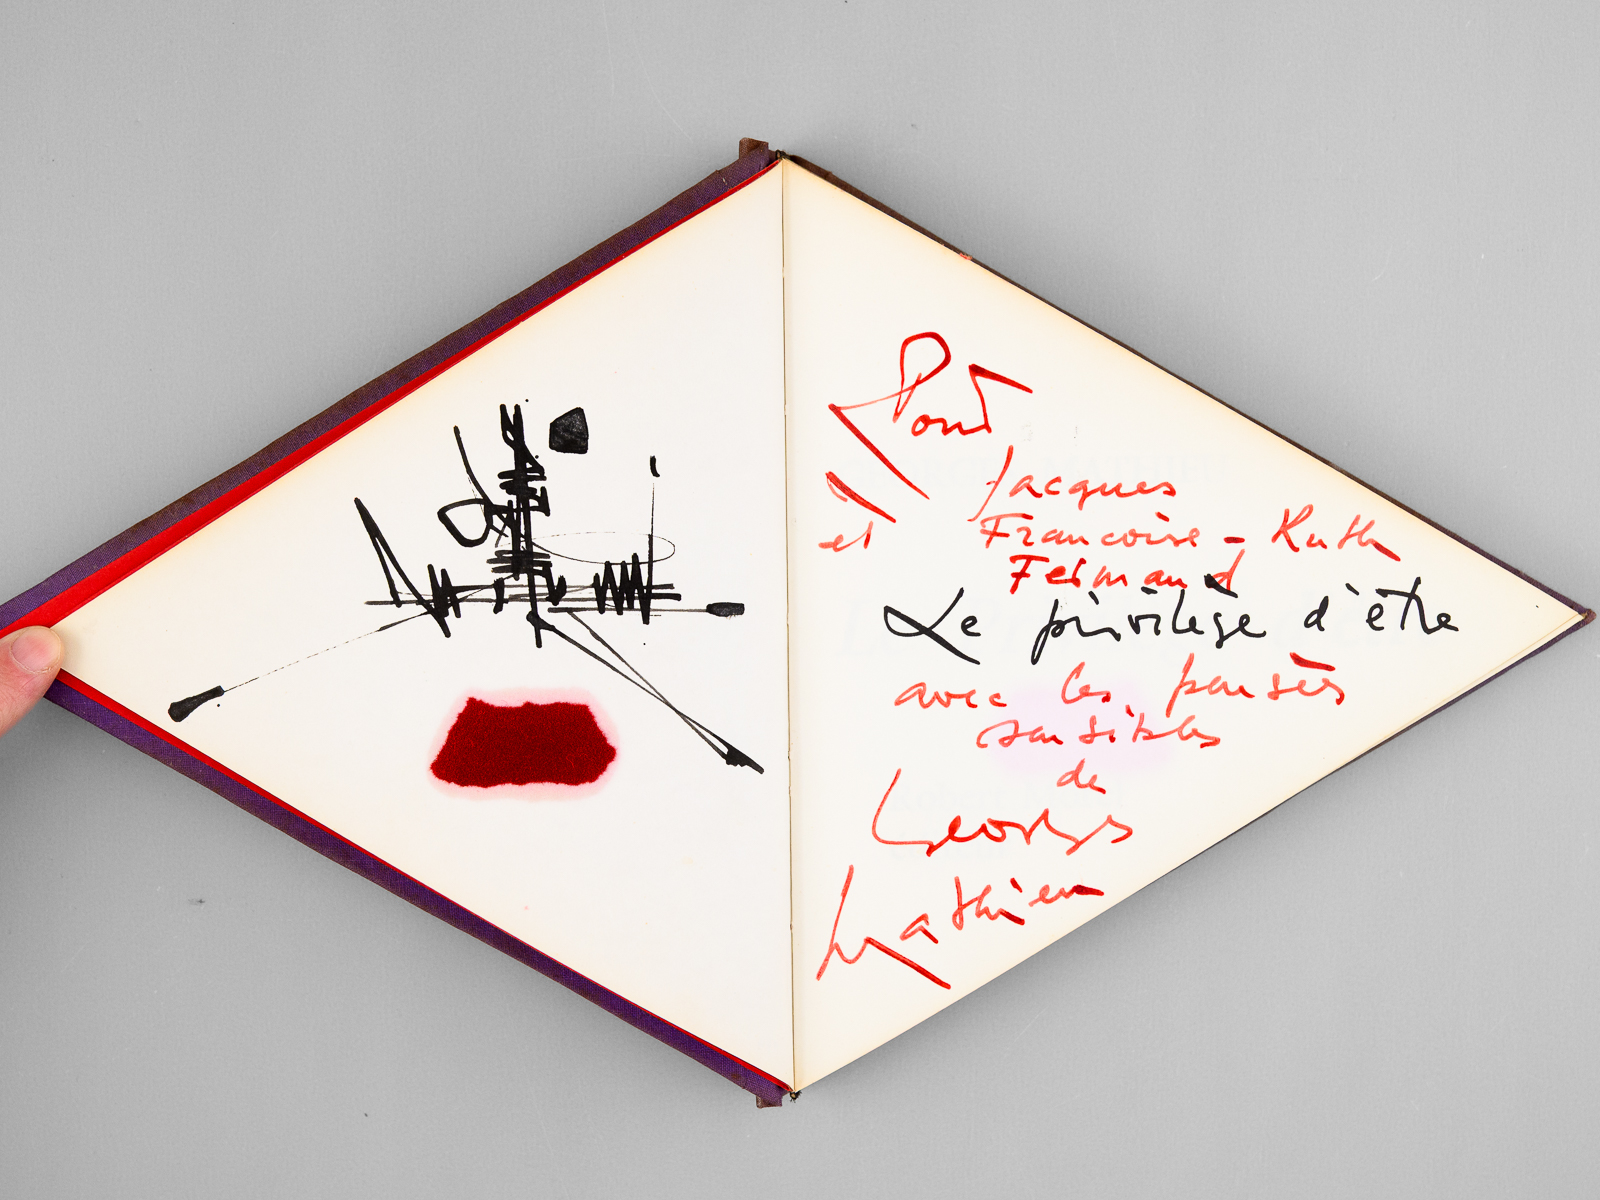 Pour
Jacques
et Francoise - Ruth
Fermand
Le privilège d'être
avec les pensées
sensibles
de
Georges
Mathieu